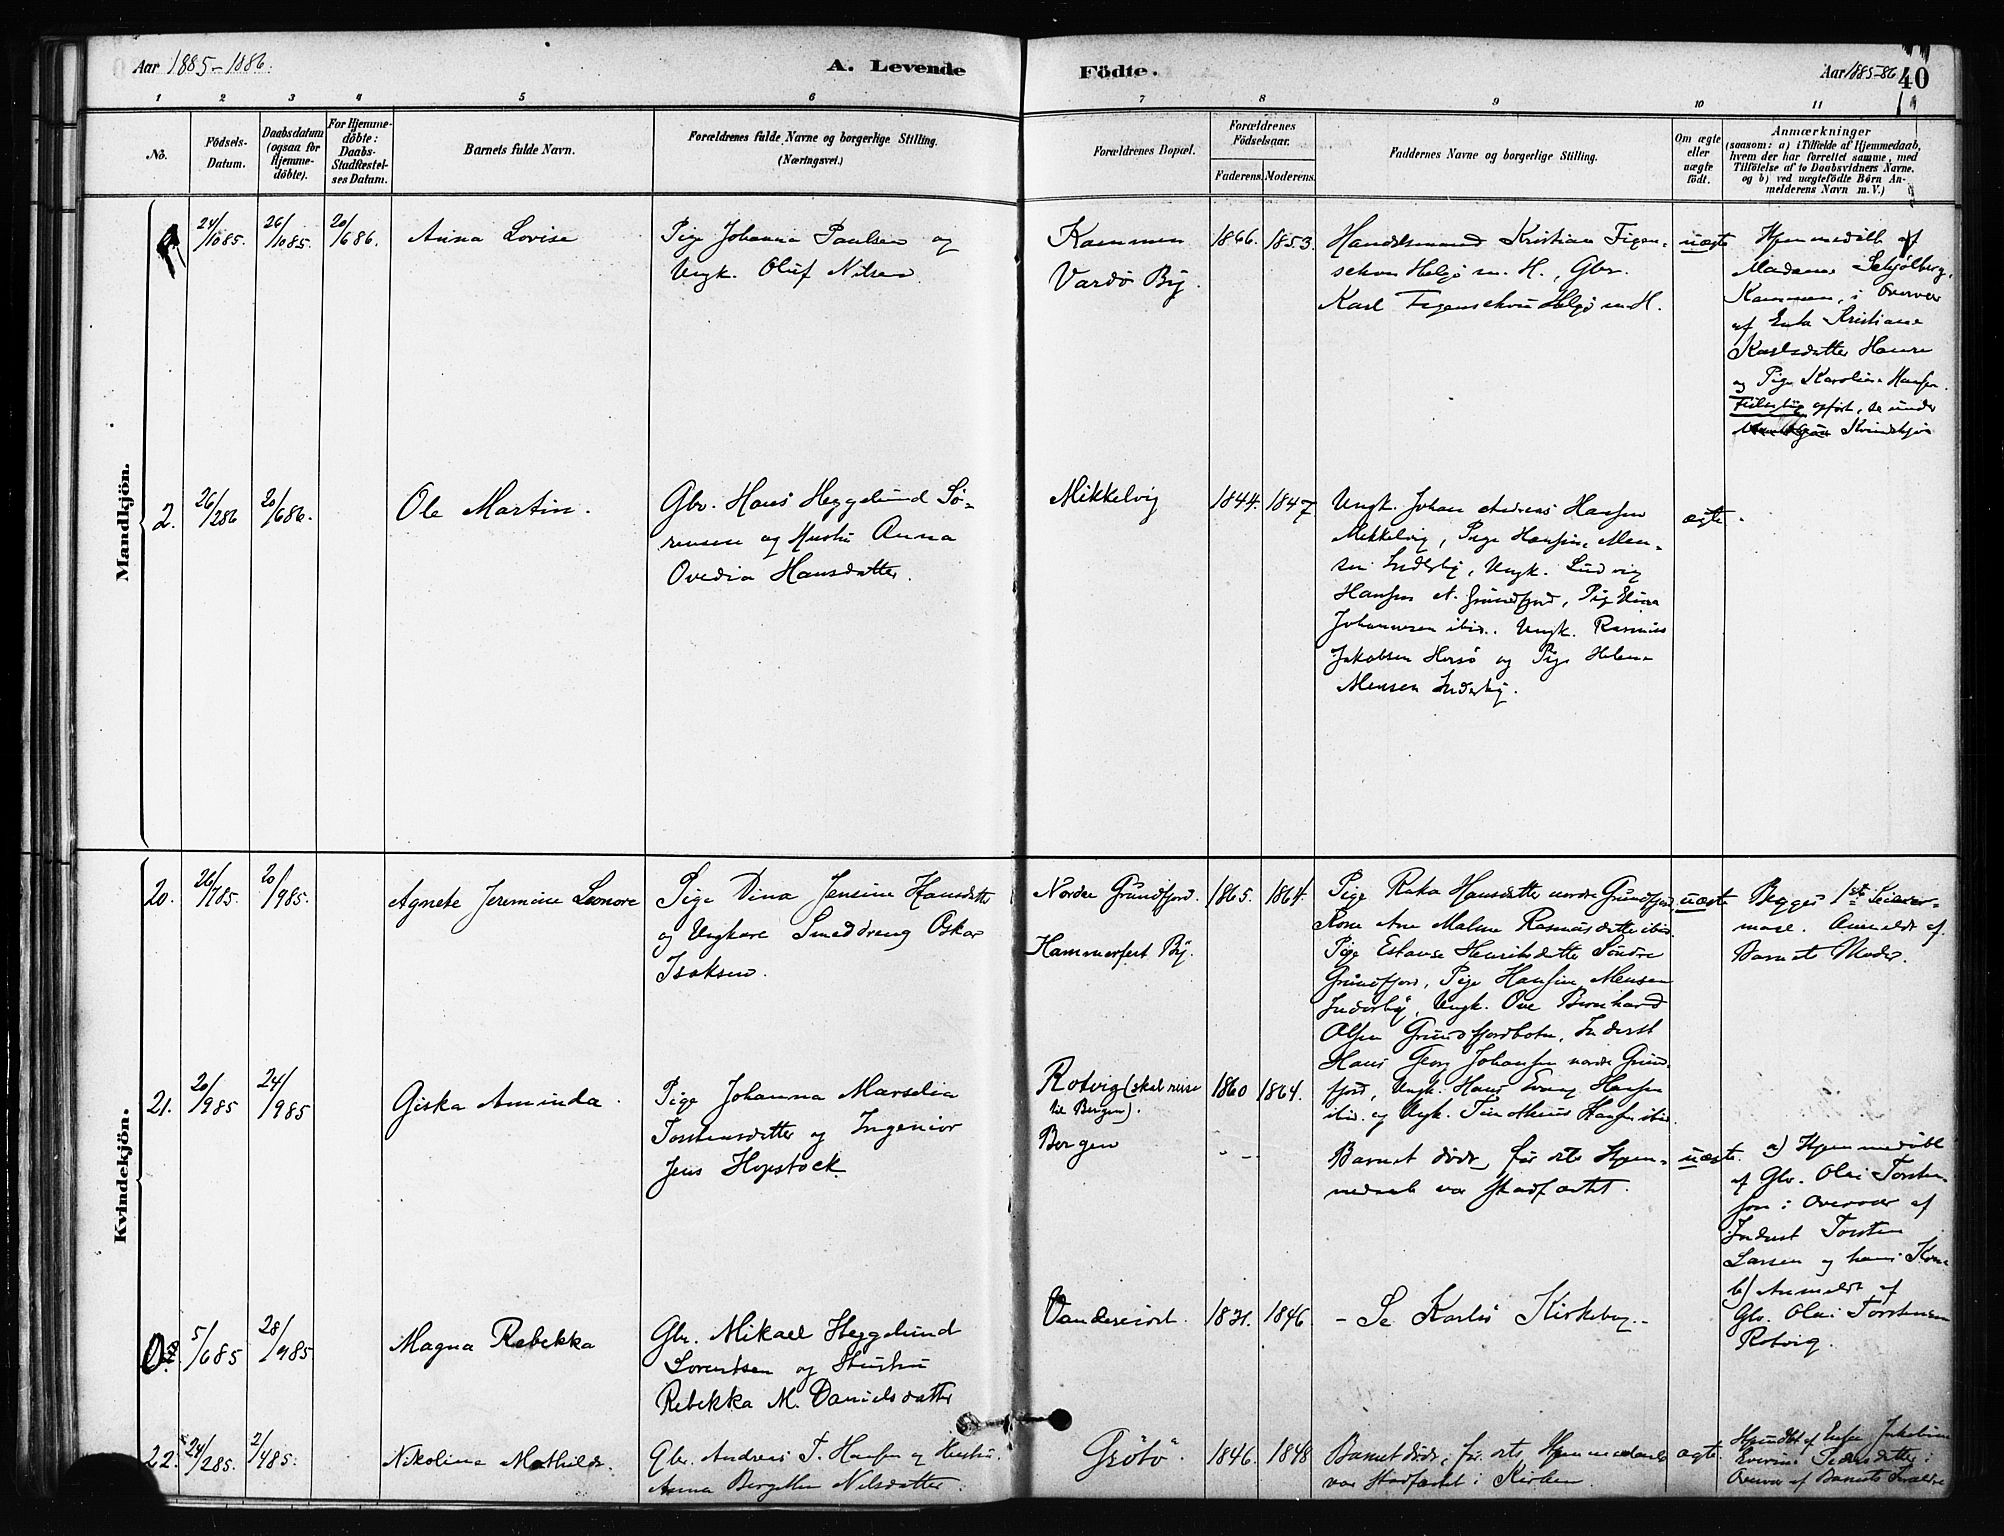 Aar 1885-1886.
A. Levende
Födte.
Aar 1885-86
40
1 2 3 4 5 6 7 8 9 10 11
No.
Födsels-
Datum.
Daabsdatum
(ogsaa for
Hjemme-
döbte).
For Hjemme-
döbte:
Daabs-
Stadfæstel-
ses Datum.
Barnets fulde Navn.
Forældrenes fulde Navne og borgerlige Stilling.
(Næringsvei.)
Forældrenes Bopæl.
Forældrenes
Födselsaar.
Faderens. Moderens.
Faddernes Navne og borgerlige Stilling.
Om ægte
eller
uægte
födt.
Anmærkninger
(saasom: a) i Tilfælde af Hjemmedaab,
hvem der har forrettet samme, med
Tilföielse af to Daabsvidners Navne.
og b) ved uægtefödte Börn An-
melderens Navn m. V.)
Mandkjön.
24/1085.
26/1085.
20/686.
Anna Lovise
Pige Johanna Paulsen og
Ungk. Oluf Nilsen.
Kammen
Vardö By.
1866. 1853.
Handelsmand Kristian Figen-
schou Helgö m. H., Gbr.
Karl Figenschou Helgö m H.
uægte
Hjemmedöbt af
Madame Schjölberg,
Kammen, i Overvær
af Enke Kristiane
Karlsdatter Hansn
og Pige Karoline Hansen.
Feilagtig opfört, se under
Kvindekjön
2.
26/286
20/686.
Ole Martin.
Gbr. Hans Heggelund Sö-
rensen og Hustru Anna
Ovedia Hansdatter.
Mikkelvig
1844. 1847
Ungk. Johan Andreas Hansen
Mikkelvig, Pige Hansine Men-
sen Inderby, Ungk. Ludvig
Hansen N. Grundfjord, Pige Elina
Johannesen ibid., Ungk. Rasmus
Jakobsen Hersö og Pige Helene
Mensen Inderby.
ægte.
Kvindekjön.
20.
26/785.
20/985.
Agnete Jeremine Leonore
Pige Dina Jensine Hansdatter
og Ungkarl Smeddreng Oskar
Isaksen.
Nordre Grundfjord.
Hammerfest By.
1865. 1864.
Pige Rika Hansdatter nordre Grundfjord,
Kone Ane Malene Rasmusdatter ibid.
Pige Hendriksdatter Söndre
Grundfjord, Pige Hansine Mensen
Inderby, Ungk. Ove Bernhard
Olsen Grundfjordbotn, Inderst
Hans Georg Johansen nordre Grund-
fjord, Ungk. Hans Hansen
ibid. og Ungk. Timotheus Hansen ibid.
uægte
Begges 1ste Leier-
maal. Anmeldt af
Barnets Moder.
21.
20/985
24/985
Giska Aminda.
Pige Johanna Marselia
Torstensdatter og Ingeniör
Jens Hopstock
Rotvig (skal reise
til Bergen).
Bergen
1860 1864.
Barnet döde, för dets Hjem-
medaab var stadfæstet.
uægte.
a) Hjemmedöbt
af Gbr. Olai Torsten-
sen i Overvær af
Inderst Torsten
Larsen og hans Kone
b) Anmeldt af
Gbr. Olai Torstensen
Rotvig.
5/685
28/985
Magna Rebekka
Gbr. Mikael Heggelund
Lorentsen og Hustru
Rebekka M. Danielsdatter
1821. 1846
- Se Karlsö Kirkebog. -
22.
24/285.
2/485.
Nikoline Mathilde.
Gbr. Andreas T. Hansen og Hustru
Anna Bergithe Nilsdatter.
Grötö
1846. 1848
Barnet döde, för dets Hjemmedaab
var stadfæstet i Kirken
ægte.
Hjmdbt af Enke Jakobine
Everine Pedersdatter i
Overvær af Barnets Forældre